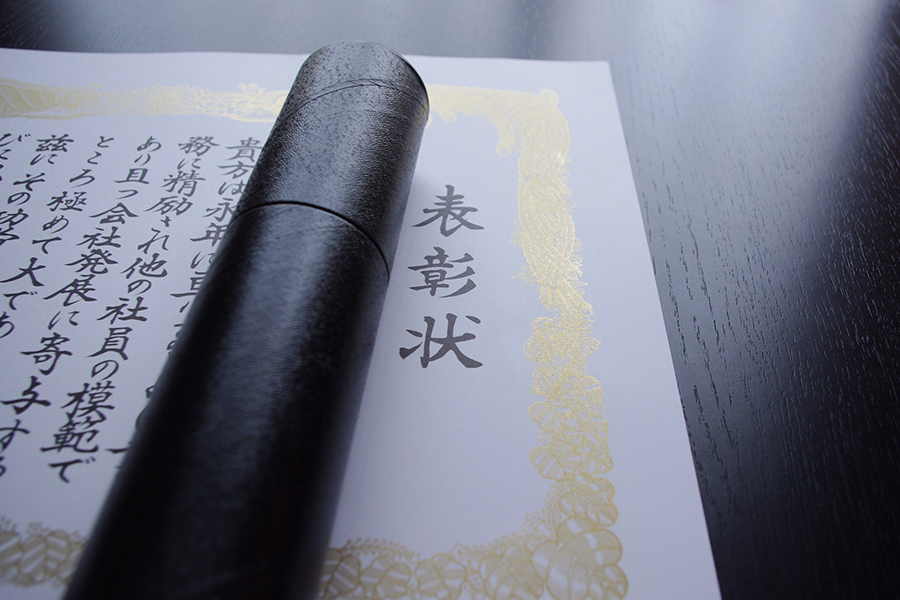 表彰状
貴方は永年に亘
務に精励され他の社員の模範で
あり且つ会社発展に寄与する
ところ極めて大であ
茲にその功労